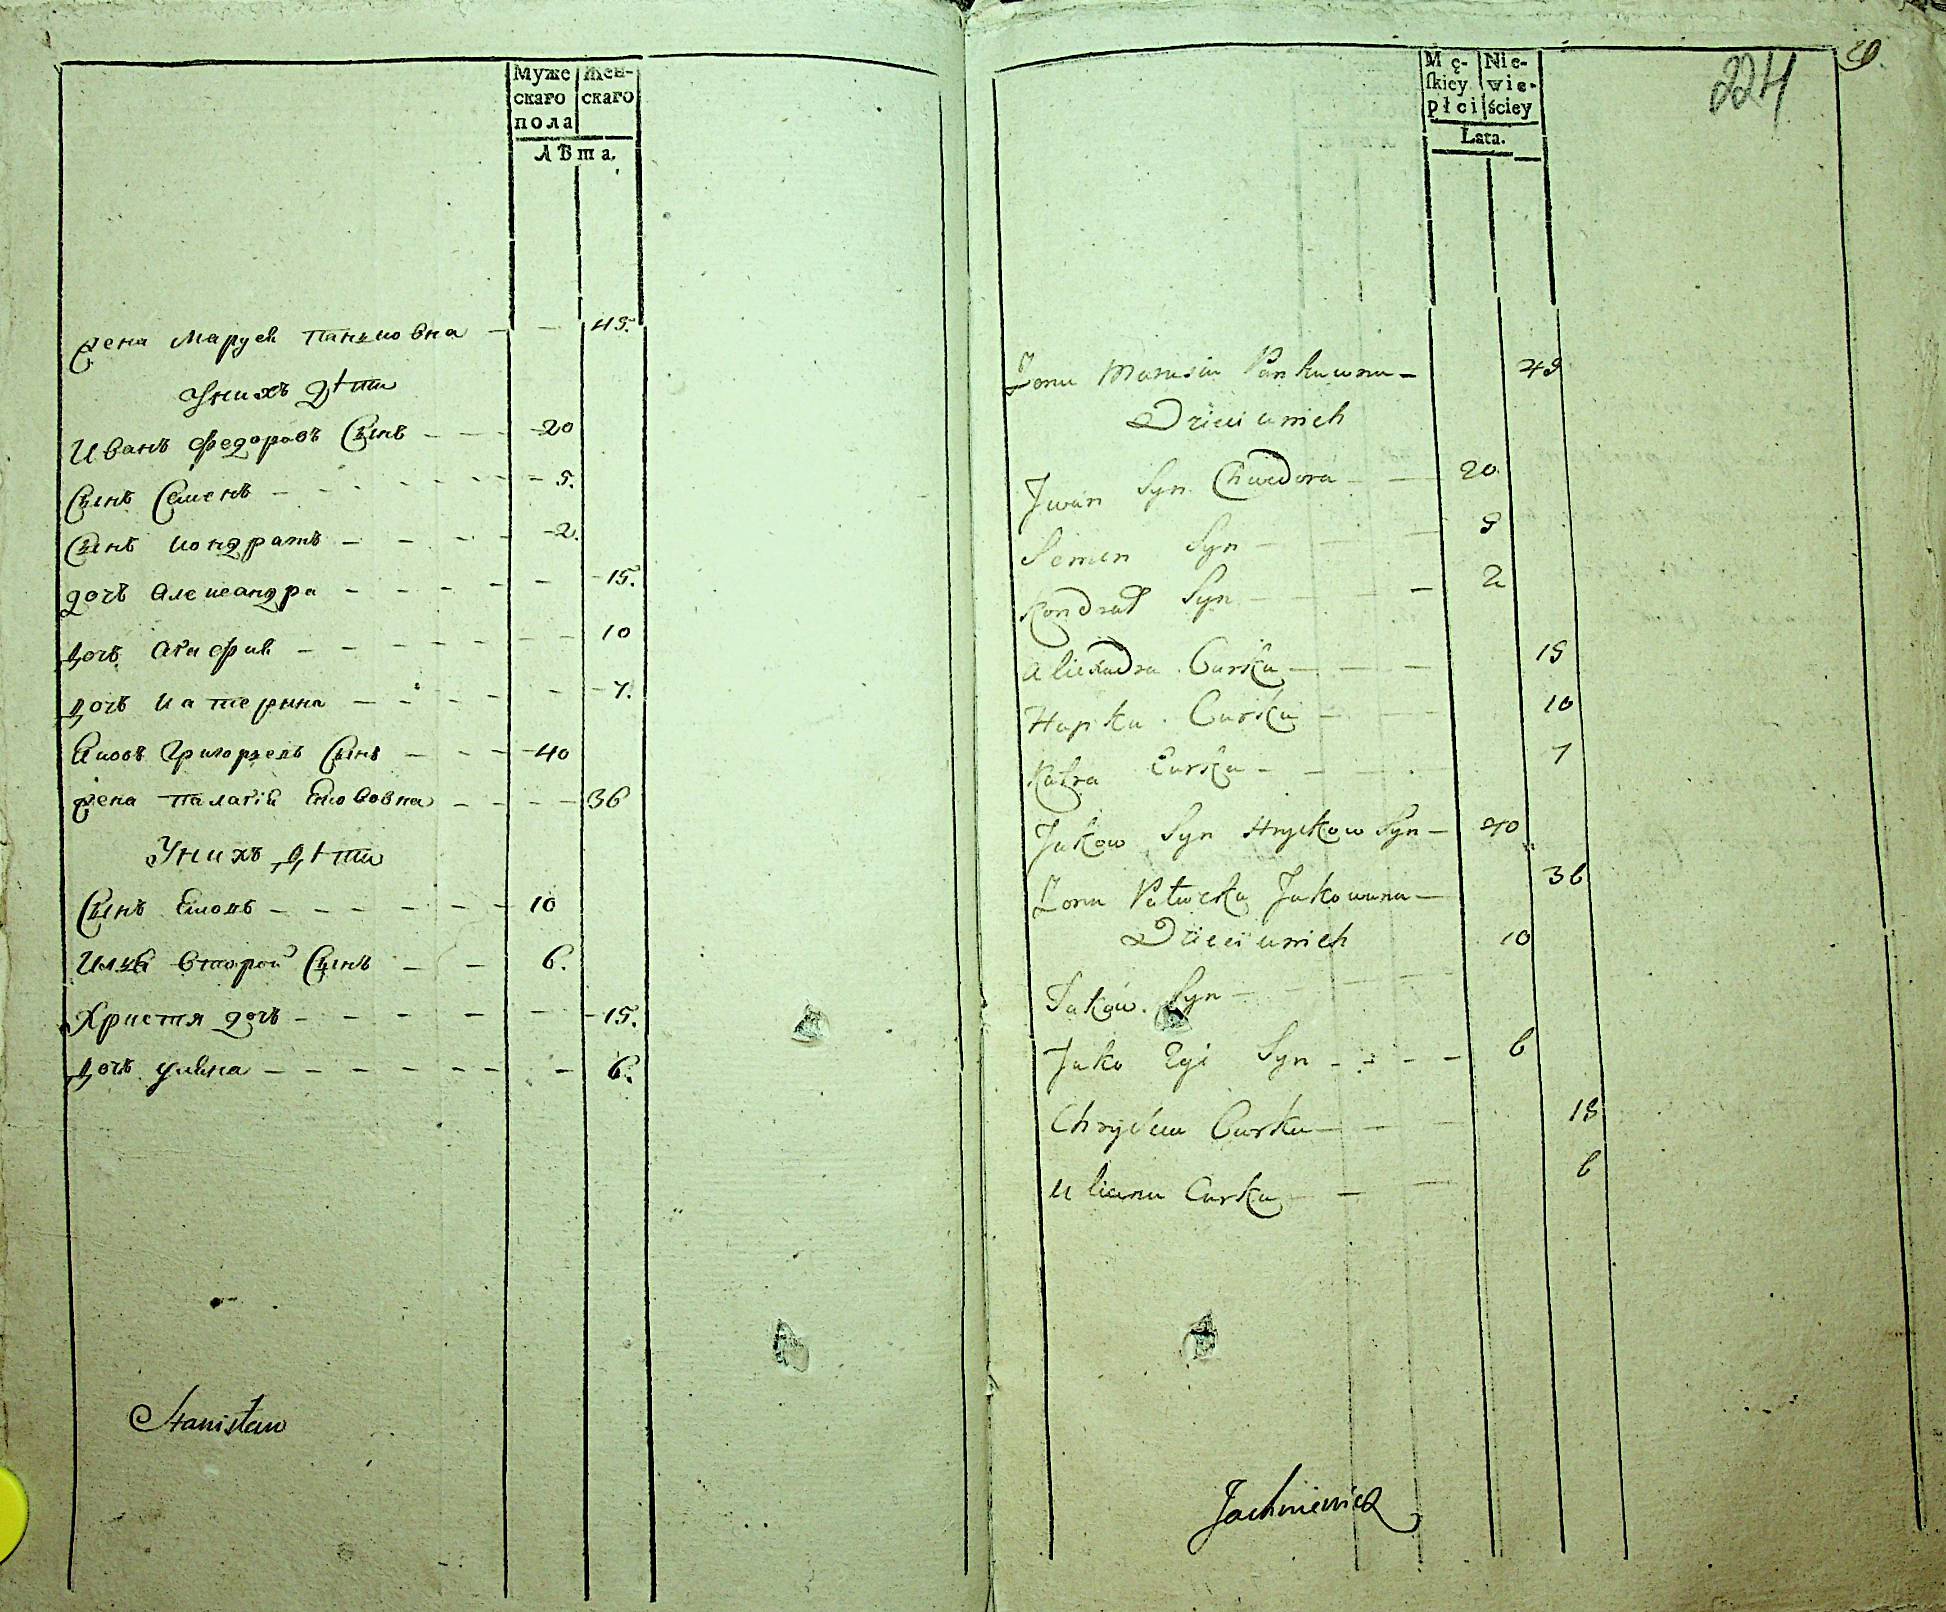 Муже
скаго
пола
Жен-
скаго
лѣта.
жена Маруся Панкювна — — 45.
Унихъ дѣти
Иванъ Федоровъ Сынъ — — — 20
Сынъ Семенъ — — — 5.
Сынъ Кондратъ — — — 2.
дочь Александра — — — 15.
дочь Агафия — — — 10
дочь Катерына — — — 7.
Яковъ Григорьевъ Сынъ — — 40
жена Палагія Якововна — — — 36
Унихъ дѣти
Сынъ Яковъ — — — 10
второй Сынъ — — 6.
Христя дочь — — — 15.
дочь уляна — — — 6.
Stanisław
224
Mę-
skiey
płci
Nie-
wie-
ściey
Lata.
Żona Marusia Pankuwna — 45
Dzieci u nich
Jwan Syn Chwedora — — 20
Semen Syn — — — 5
Kondrat Syn — — — 2
Alixandra Curka — — — 15
Hapka Curka — — — 10
Katra Curka — — — 7
Jakow Syn Hryckow Syn — 40
Żona Jakowuwna — 36
Dzieci u nich
Jaków Syn — — — 10
Syn — — — 6
Curka — — — 15
Uliana Curka — — — 6
Jachniewicz